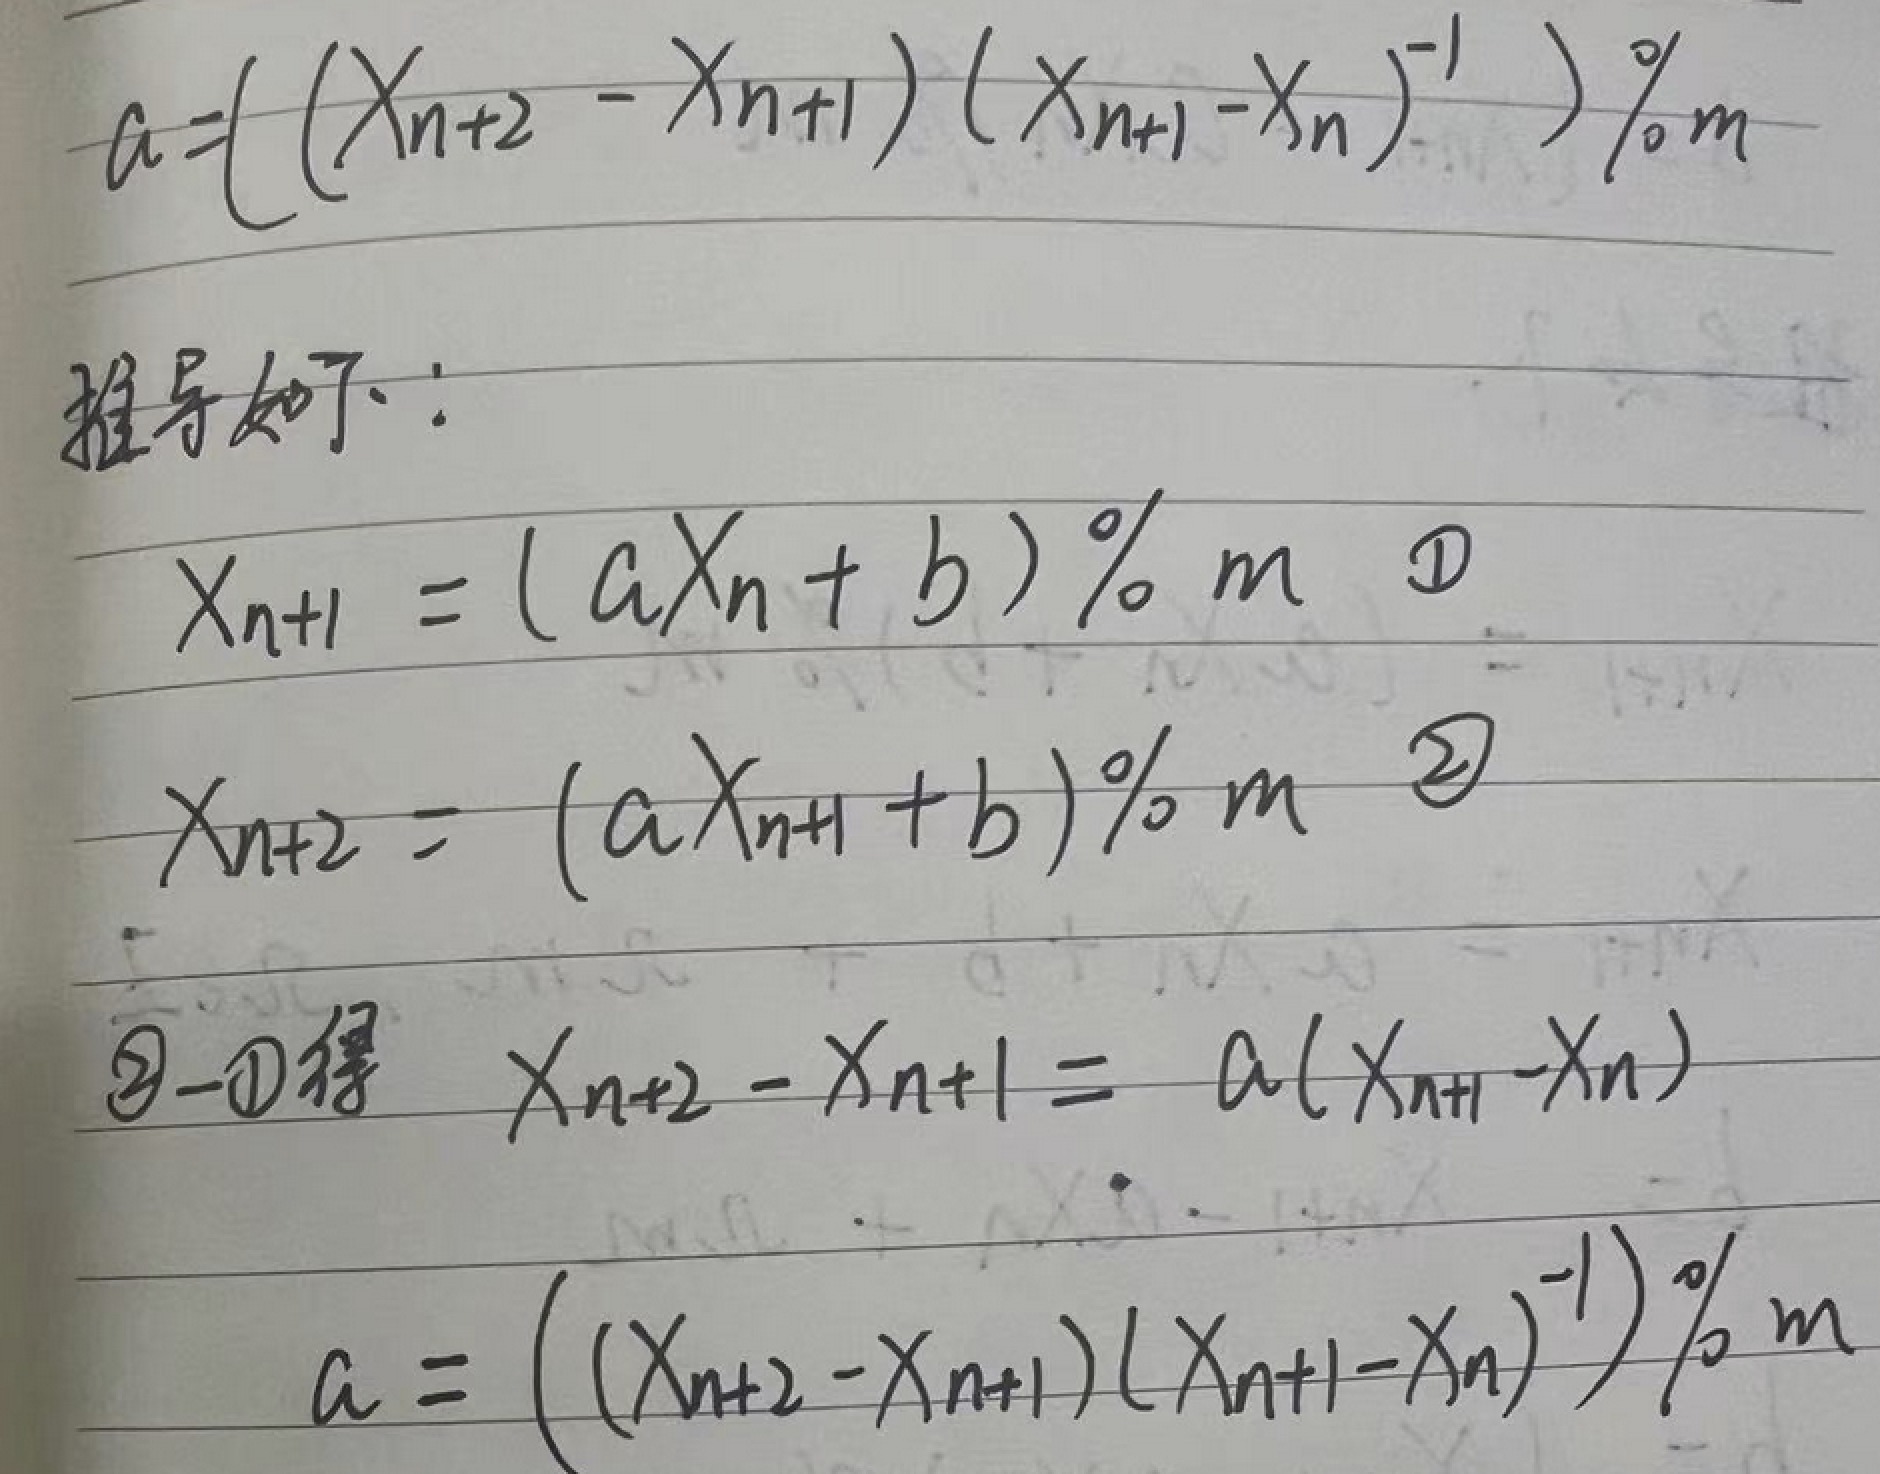 a=((Xn+2 - Xn+1)(Xn+1-Xn)^-1)%m
推导如下:
Xn+1 = (aXn+b)%m ①
Xn+2 = (aXn+1+b)%m ②
②-①得 Xn+2-Xn+1= a(Xn+1-Xn)
a = ((Xn+2-Xn+1)(Xn+1-Xn)^-1)%m